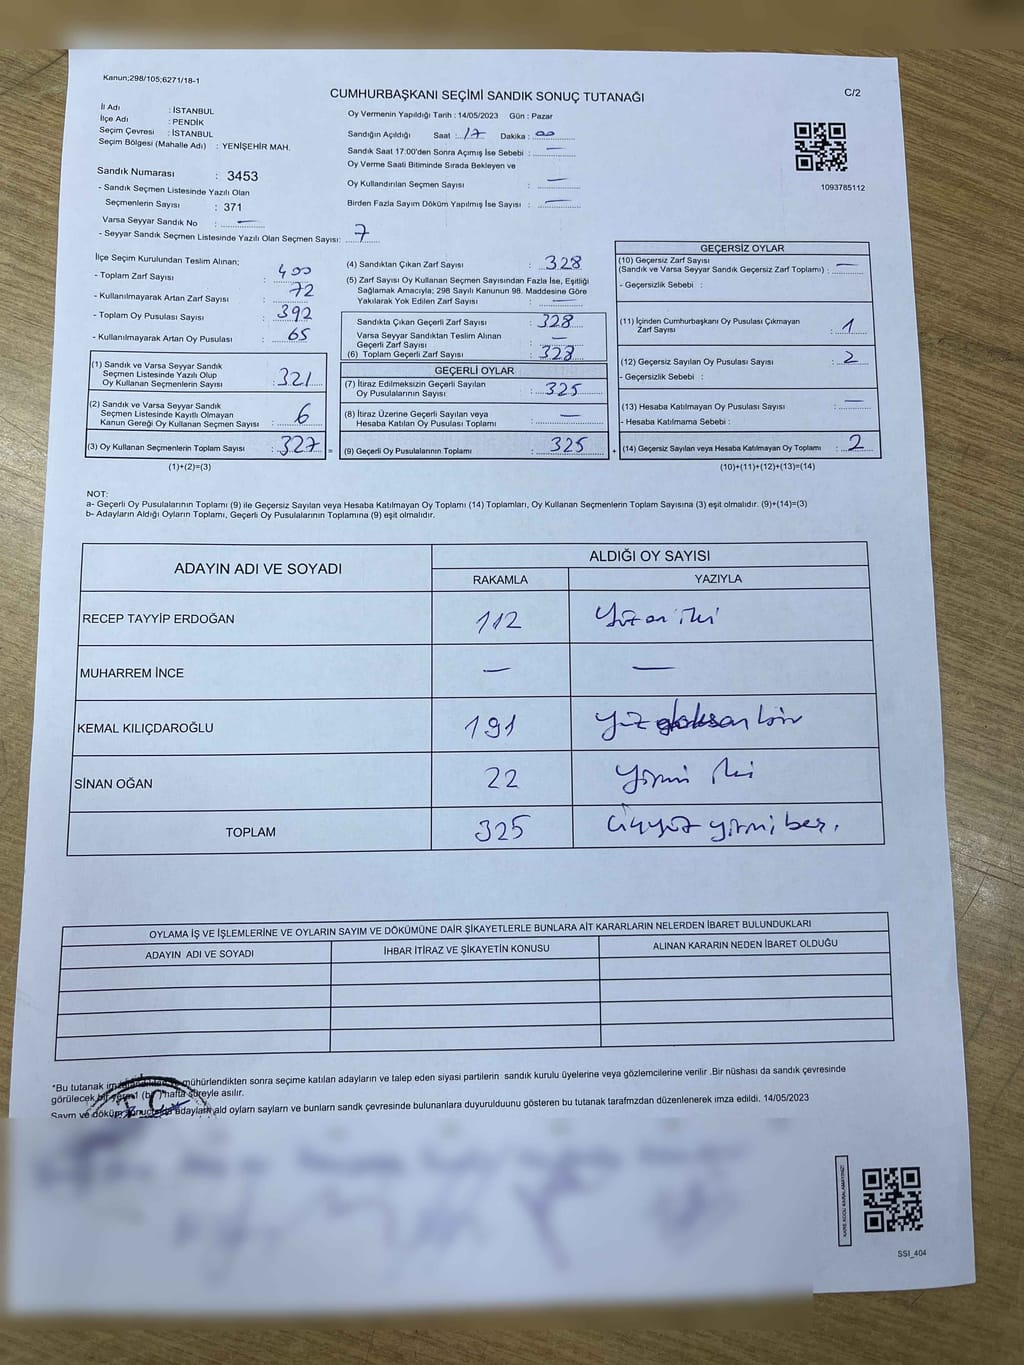 Kanun;298/105;6271/18-1
CUMHURBAŞKANI SEÇİMİ SANDIK SONUÇ TUTANAĞI
C/2
İl Adı : İSTANBUL
İlçe Adı : PENDİK
Seçim Çevresi : İSTANBUL
Seçim Bölgesi (Mahalle Adı) : YENİŞEHİR MAH.
Sandık Numarası : 3453
- Sandık Seçmen Listesinde Yazılı Olan
Seçmenlerin Sayısı : 371
Varsa Seyyar Sandık No : —
- Seyyar Sandık Seçmen Listesinde Yazılı Olan Seçmen Sayısı: 7
Oy Vermenin Yapıldığı Tarih : 14/05/2023 Gün : Pazar
Sandığın Açıldığı Saat : 17 Dakika : 00
Sandık Saat 17:00'den Sonra Açımış İse Sebebi : —
Oy Verme Saati Bitiminde Sırada Bekleyen ve
Oy Kullandırılan Seçmen Sayısı : —
Birden Fazla Sayım Döküm Yapılmış İse Sayısı : —
1093785112
İlçe Seçim Kurulundan Teslim Alınan;
- Toplam Zarf Sayısı : 400
- Kullanılmayarak Artan Zarf Sayısı : 72
- Toplam Oy Pusulası Sayısı : 392
- Kullanılmayarak Artan Oy Pusulası : 65
(1) Sandık ve Varsa Seyyar Sandık
Seçmen Listesinde Yazılı Olup
Oy Kullanan Seçmenlerin Sayısı : 321
(2) Sandık ve Varsa Seyyar Sandık
Seçmen Listesinde Kayıtlı Olmayan
Kanun Gereği Oy Kullanan Seçmen Sayısı : 6
(3) Oy Kullanan Seçmenlerin Toplam Sayısı : 327 =
(1)+(2)=(3)
(4) Sandıktan Çıkan Zarf Sayısı : 328
(5) Zarf Sayısı Oy Kullanan Seçmen Sayısından Fazla İse, Eşitliği
Sağlamak Amacıyla; 298 Sayılı Kanunun 98. Maddesine Göre
Yakılarak Yok Edilen Zarf Sayısı : —
Sandıkta Çıkan Geçerli Zarf Sayısı : 328
Varsa Seyyar Sandıktan Teslim Alınan
Geçerli Zarf Sayısı : —
(6) Toplam Geçerli Zarf Sayısı : 328
GEÇERLİ OYLAR
(7) İtiraz Edilmeksizin Geçerli Sayılan
Oy Pusulalarının Sayısı : 325
(8) İtiraz Üzerine Geçerli Sayılan veya
Hesaba Katılan Oy Pusulası Toplamı : —
(9) Geçerli Oy Pusulalarının Toplamı : 325 +
GEÇERSİZ OYLAR
(10) Geçersiz Zarf Sayısı
(Sandık ve Varsa Seyyar Sandık Geçersiz Zarf Toplamı) : —
- Geçersizlik Sebebi :
(11) İçinden Cumhurbaşkanı Oy Pusulası Çıkmayan
Zarf Sayısı : 1
(12) Geçersiz Sayılan Oy Pusulası Sayısı : 2
- Geçersizlik Sebebi :
(13) Hesaba Katılmayan Oy Pusulası Sayısı : —
- Hesaba Katılmama Sebebi :
(14) Geçersiz Sayılan veya Hesaba Katılmayan Oy Toplamı : 2
(10)+(11)+(12)+(13)=(14)
NOT:
a- Geçerli Oy Pusulalarının Toplamı (9) ile Geçersiz Sayılan veya Hesaba Katılmayan Oy Toplamı (14) Toplamları, Oy Kullanan Seçmenlerin Toplam Sayısına (3) eşit olmalıdır. (9)+(14)=(3)
b- Adayların Aldığı Oyların Toplamı, Geçerli Oy Pusulalarının Toplamına (9) eşit olmalıdır.
ADAYIN ADI VE SOYADI ALDIĞI OY SAYISI
RAKAMLA YAZIYLA
RECEP TAYYİP ERDOĞAN 112 Yüz on iki
MUHARREM İNCE — —
KEMAL KILIÇDAROĞLU 191 yüz doksan bir
SİNAN OĞAN 22 yirmi iki
TOPLAM 325 üçyüz yirmi beş.
OYLAMA İŞ VE İŞLEMLERİNE VE OYLARIN SAYIM VE DÖKÜMÜNE DAİR ŞİKAYETLERLE BUNLARA AİT KARARLARIN NELERDEN İBARET BULUNDUKLARI
ADAYIN ADI VE SOYADI İHBAR İTİRAZ VE ŞİKAYETİN KONUSU ALINAN KARARIN NEDEN İBARET OLDUĞU
*Bu tutanak mühürlendikten sonra seçime katılan adayların ve talep eden siyasi partilerin sandık kurulu üyelerine veya gözlemcilerine verilir .Bir nüshası da sandık çevresinde
görülecek bir yere 1 (bir) hafta süreyle asılır.
Sayım ve döküm adayların ald oyların sayların ve bunların sandk çevresinde bulunanlara duyurulduunu gösteren bu tutanak tarafmzdan düzenlenerek imza edildi. 14/05/2023
T.C.
KARE KODU KARALAMAYINIZ!
SSI_404